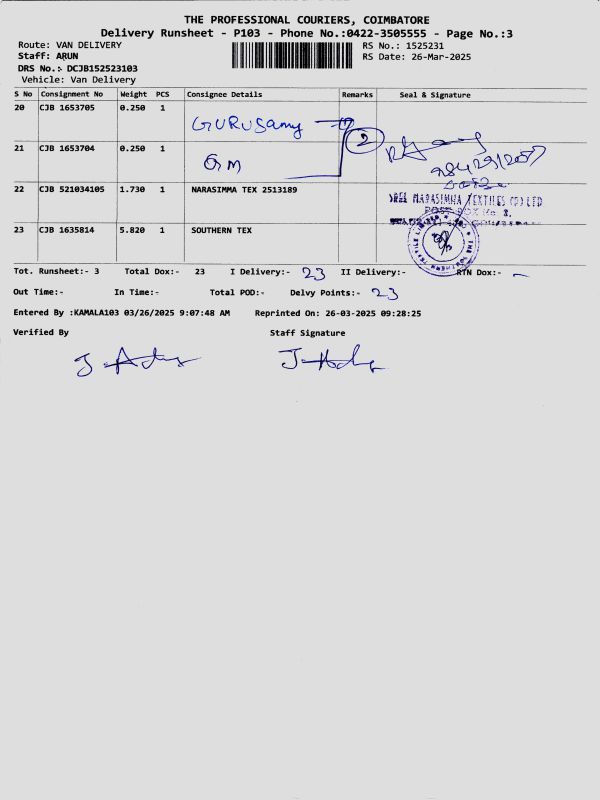 THE PROFESSIONAL COURIERS, COIMBATORE
Delivery Runsheet - P103 - Phone No.:0422-3505555 - Page No.:3
Route: VAN DELIVERY RS No.: 1525231
Staff: ARUN RS Date: 26-Mar-2025
DRS No.: DCJB152523103
Vehicle: Van Delivery
S No Consignment No Weight PCS Consignee Details Remarks Seal & Signature
20 CJB 1653705 0.250 1
GURUSamy
2
21 CJB 1653704 0.250 1
GM
22 CJB 521034105 1.730 1 NARASIMMA TEX 2513189
SREE NARASIMHA TEXTILES (P) LTD
23 CJB 1635814 5.820 1 SOUTHERN TEX
Tot. Runsheet:- 3 Total Dox:- 23 I Delivery:- 23 II Delivery:- RTN Dox:- -
Out Time:- In Time:- Total POD:- Delvy Points:- 23
Entered By :KAMALA103 03/26/2025 9:07:48 AM Reprinted On: 26-03-2025 09:28:25
Verified By Staff Signature